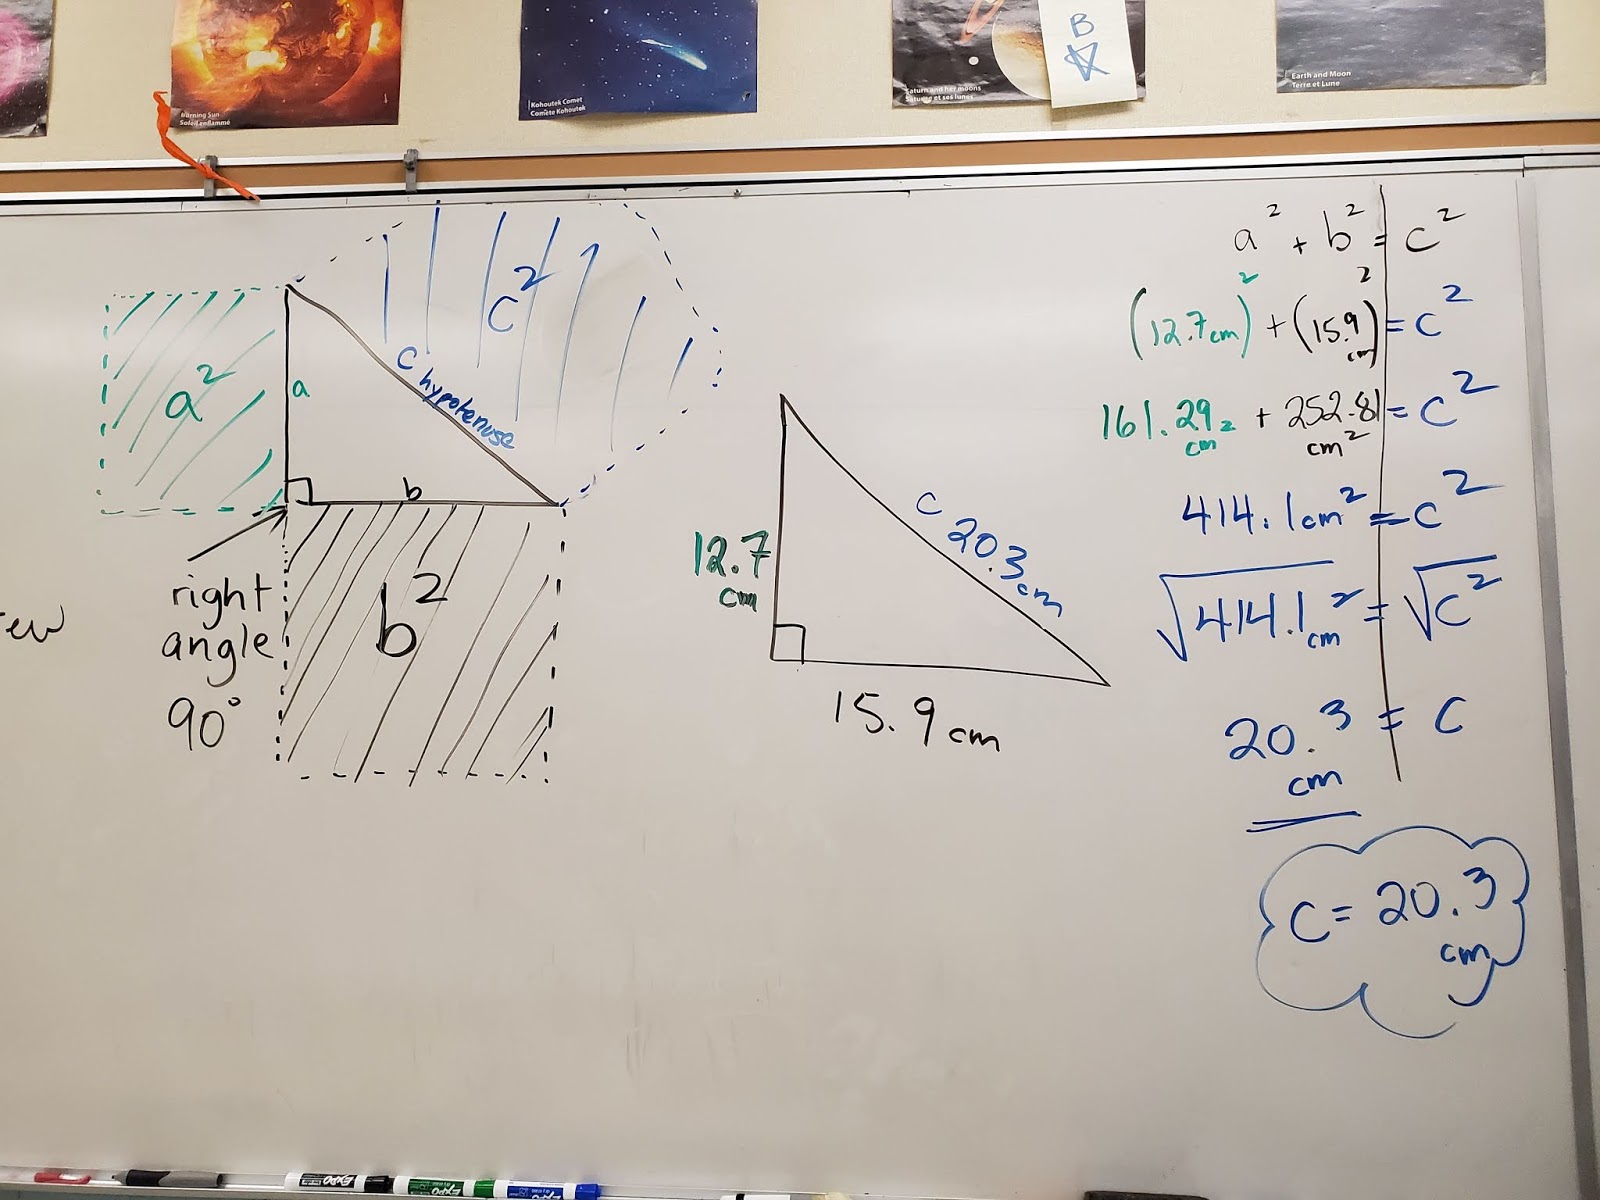 Burning Sun
Soleil enflammé
Kohoutek Comet
Comète Kohoutek
Saturn and her moons
Saturne et ses lunes
B
Earth and Moon
Terre et Lune
a²
a
c²
c hypotenuse
b
b²
right
angle
90°
ew
12.7
cm
c
20.3 cm
15.9 cm
a² + b² = c²
(12.7cm)² + (15.9 cm)² = c²
161.29 cm² + 252.81 cm² = c²
414.1cm² = c²
√414.1cm² = √c²
20.3 cm = c
c = 20.3
cm
EXPO
EXPO
EXPO